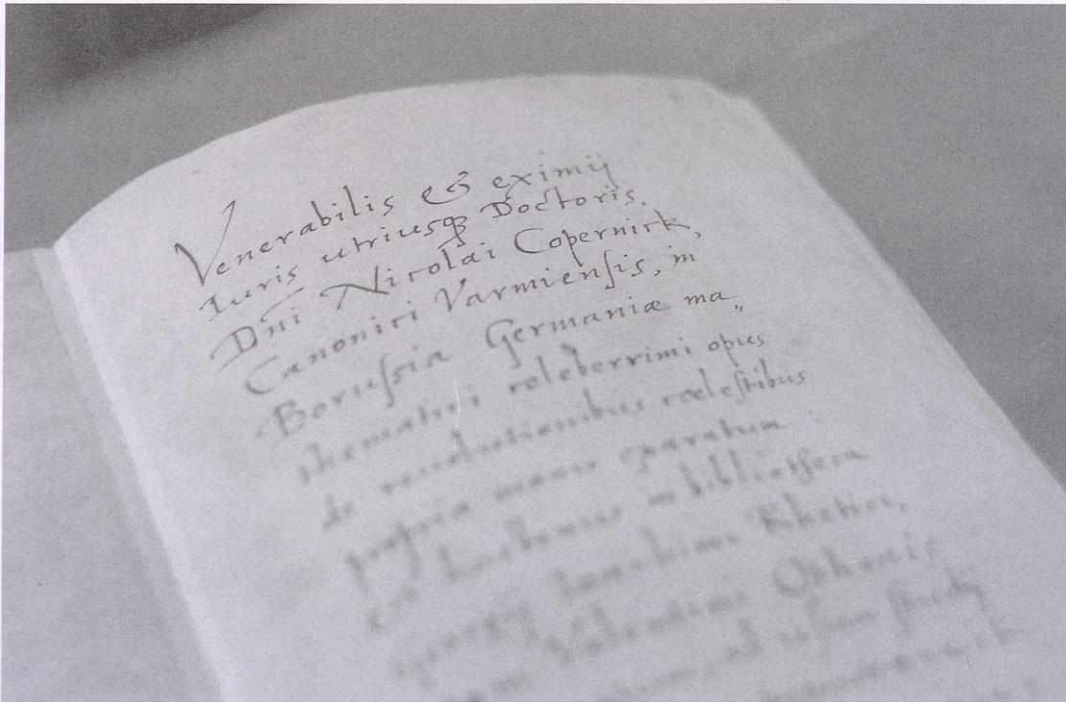 Venerabilis & eximij
Iuris utriusqꝫ Doctoris,
Dñi Nicolai Copernick,
Canonici Varmiensis, in
Borussia Germaniæ ma„
thematici celeberrimi opus
de revolutionibus cœlestibus
propria manu exaratum
et hactenus in bibliotheca
Georgij Ioachimi Rhetici,
Valentini Othonis
ad usum